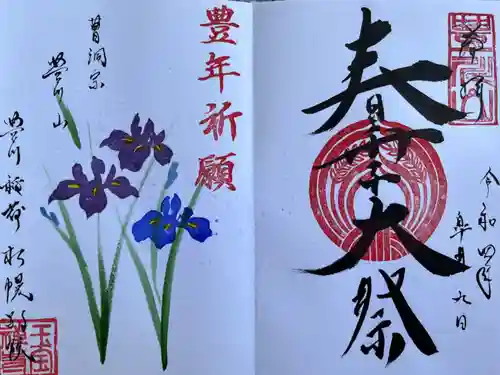 奉拝
春季大祭
令和四年
皐月九日
豊年祈願
曹洞宗
豊川山
豊川稲荷札幌別院